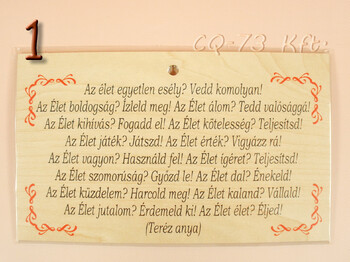 1
CQ-73 Kft.
Az élet egyetlen esély? Vedd komolyan!
Az Élet boldogság? Ízleld meg! Az Élet álom? Tedd valósággá!
Az Élet kihívás? Fogadd el! Az Élet kötelesség? Teljesítsd!
Az Élet játék? Játszd! Az Élet érték? Vigyázz rá!
Az Élet vagyon? Használd fel! Az Élet ígéret? Teljesítsd!
Az Élet szomorúság? Győzd le! Az Élet dal? Énekeld!
Az Élet küzdelem? Harcold meg! Az Élet kaland? Vállald!
Az Élet jutalom? Érdemeld ki! Az Élet élet? Éljed!
(Teréz anya)